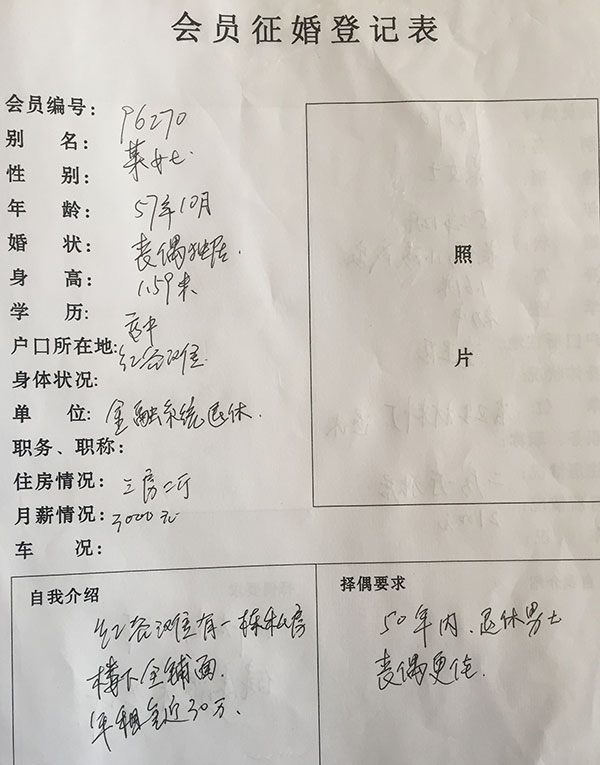 会员征婚登记表
会员编号: P6270
别 名: 某女士.
性 别:
年 龄: 57年10月
婚 状: 丧偶独居.
身 高: 1.59米
学 历: 高中
户口所在地: 红谷滩
身体状况:
单 位: 金融系统退休.
职务、职称:
住房情况: 三房二厅
月薪情况: 3000元
车 况:
照
片
自我介绍
红谷滩有一栋私房
楼下全铺面.
年租金近30万.
择偶要求
50年内、退休男士
丧偶更佳.